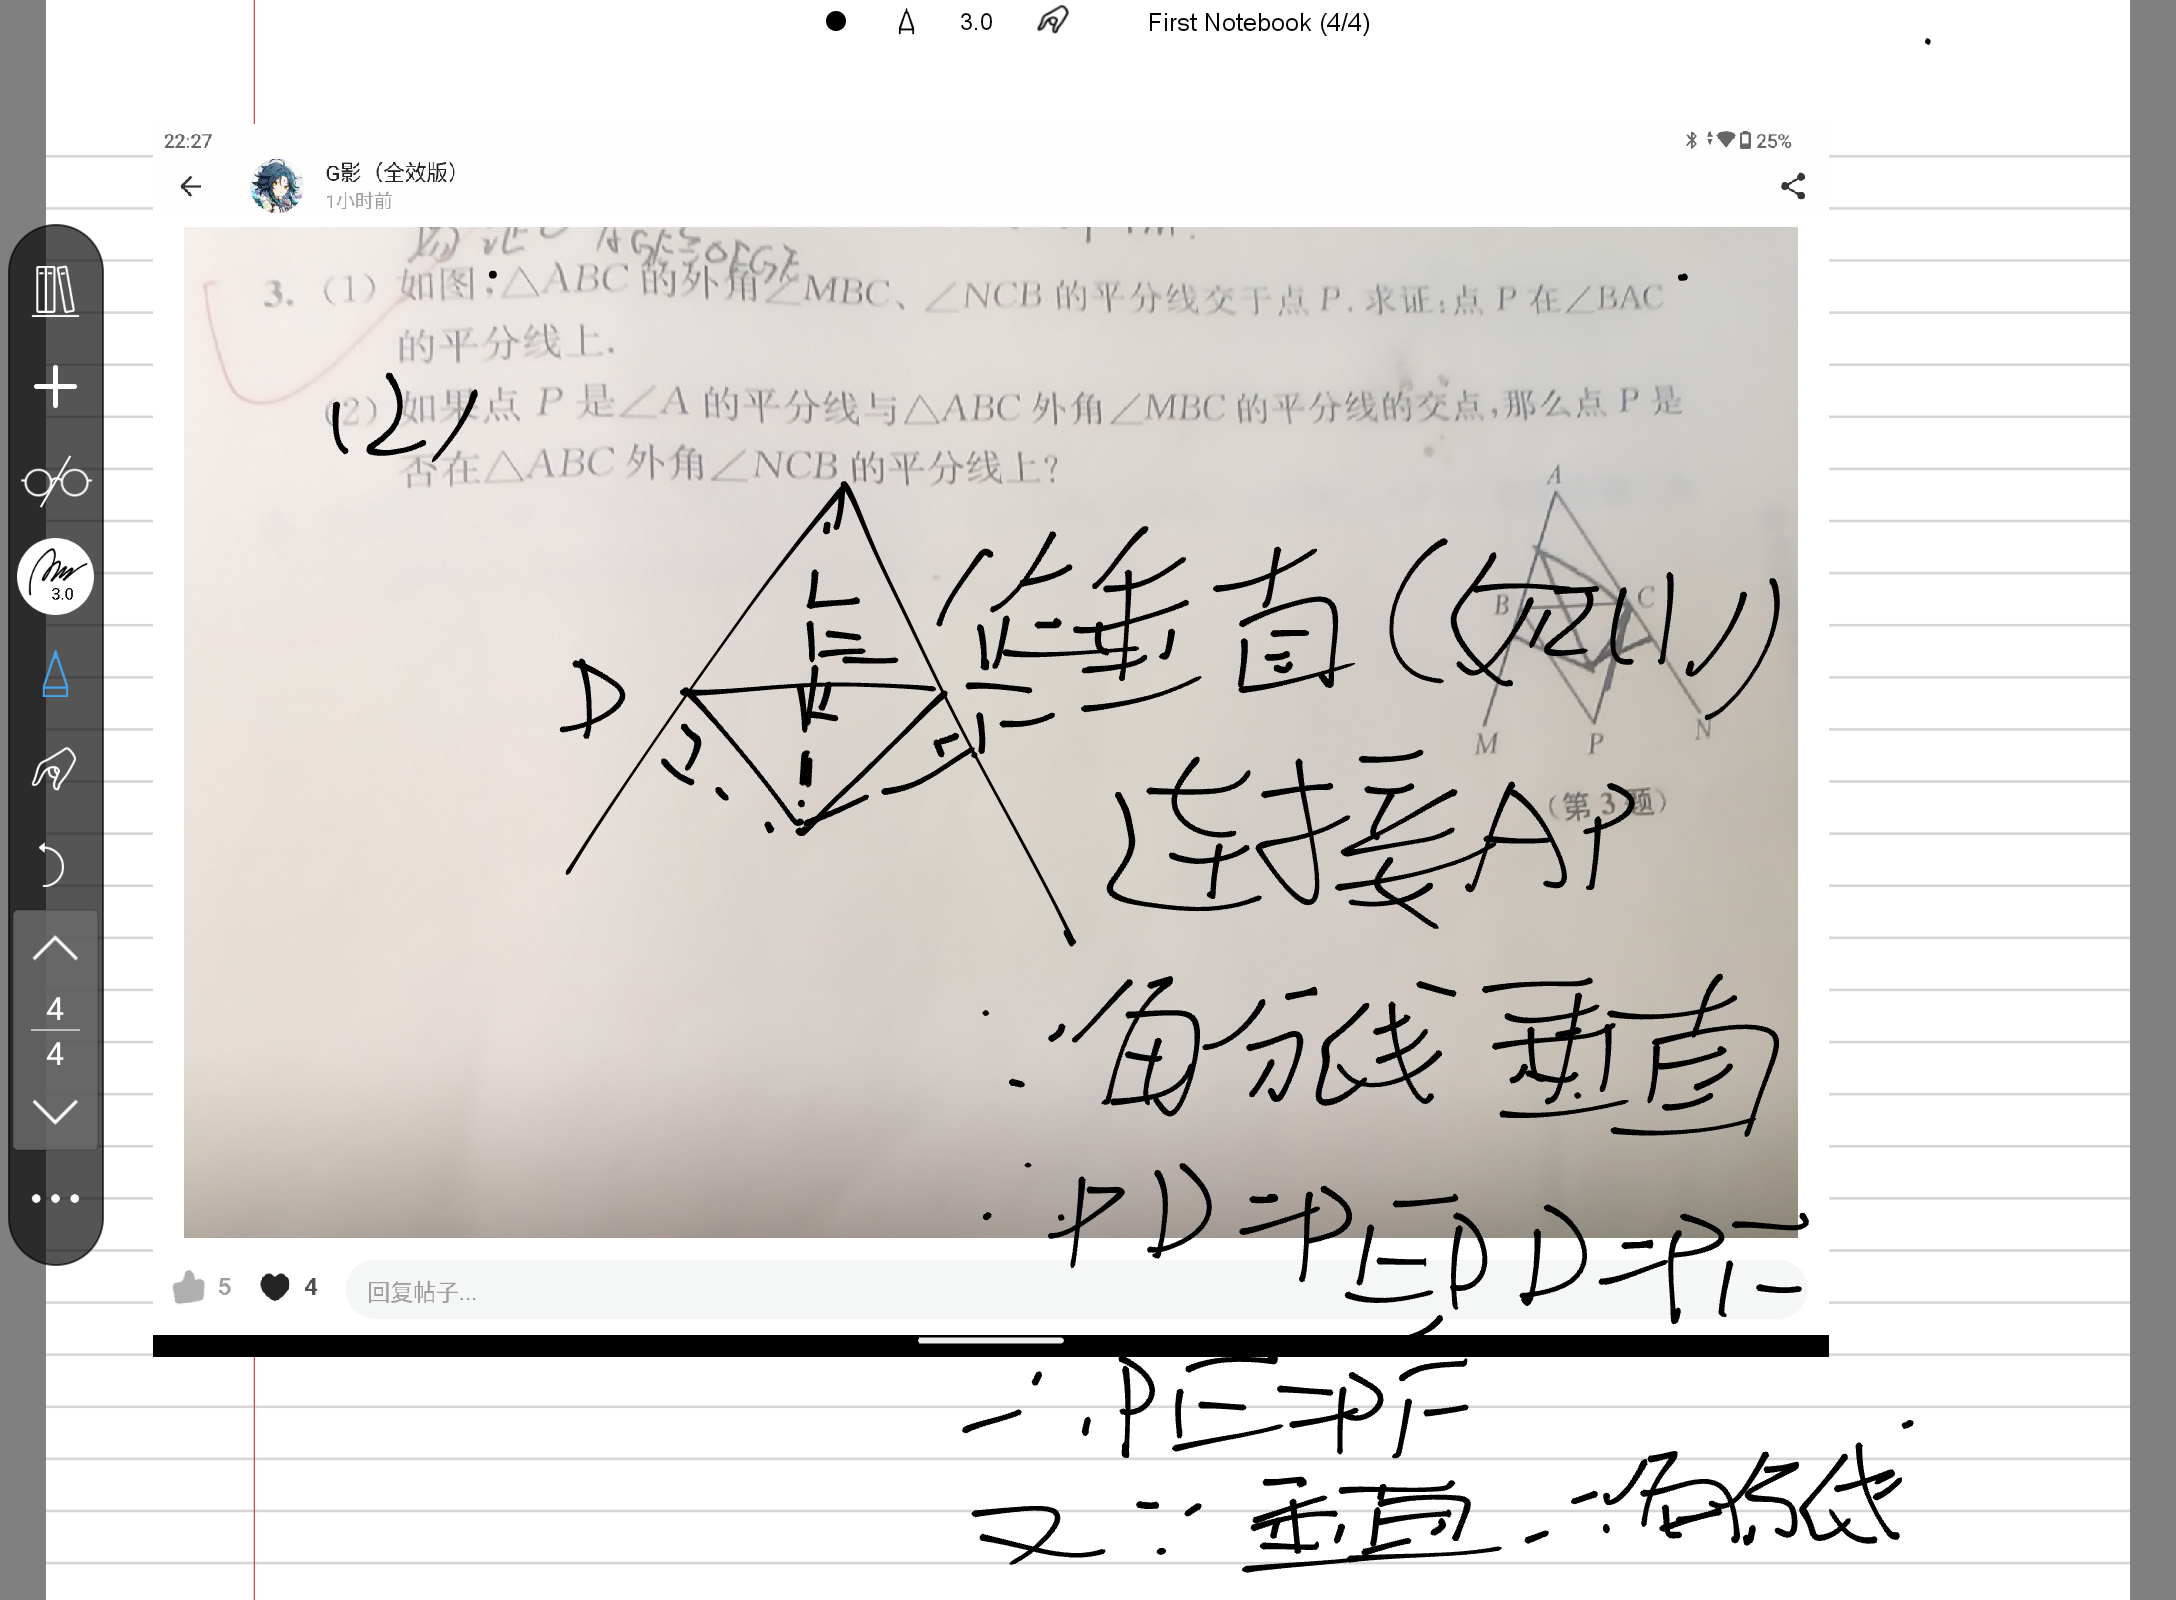 3.0 First Notebook (4/4)
22:27 25%
G影（全效版）
1小时前
3. （1）如图:△ABC的外角∠MBC、∠NCB的平分线交于点P.求证:点P在∠BAC
的平分线上.
（2）如果点P是∠A的平分线与△ABC外角∠MBC的平分线的交点,那么点P是
否在△ABC外角∠NCB的平分线上?
(2)
3.0
A
B
C
M
P
N
（第3题）
D
E
F
作垂直(如图1)
连接AP
∵角分线 垂直
∴PD=PE PD=PF
∴PE=PF
又∵垂直∴角分线
4
4
5 4 回复帖子...